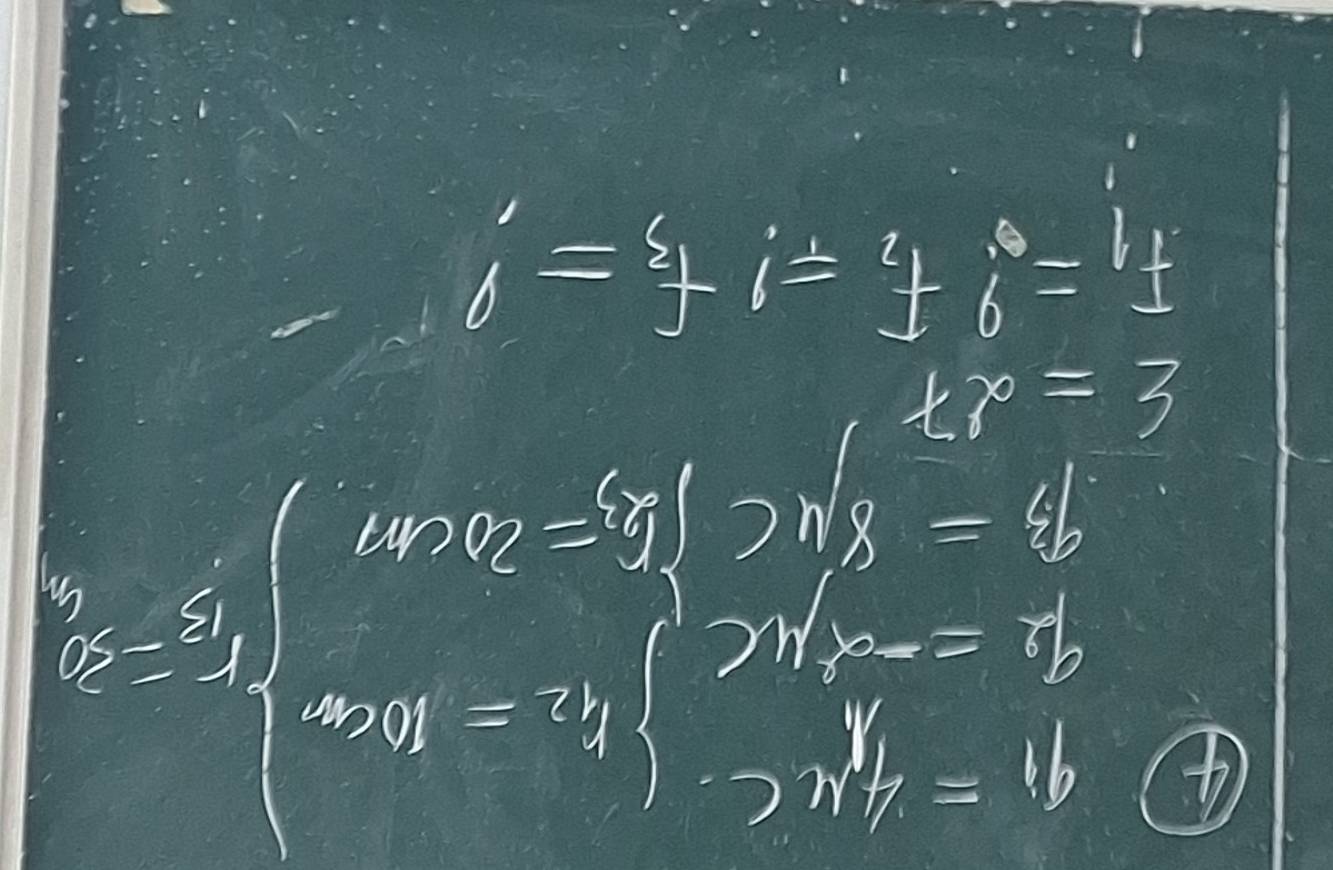 ④ q₁ = 4μC
r₁₂ = 10cm
q₂ = -2μC
r₁₃ = 30 cm
q₃ = 8μC
r₂₃ = 20cm
Σ = 27
F₁ = ? F₂ = ? F₃ = ?